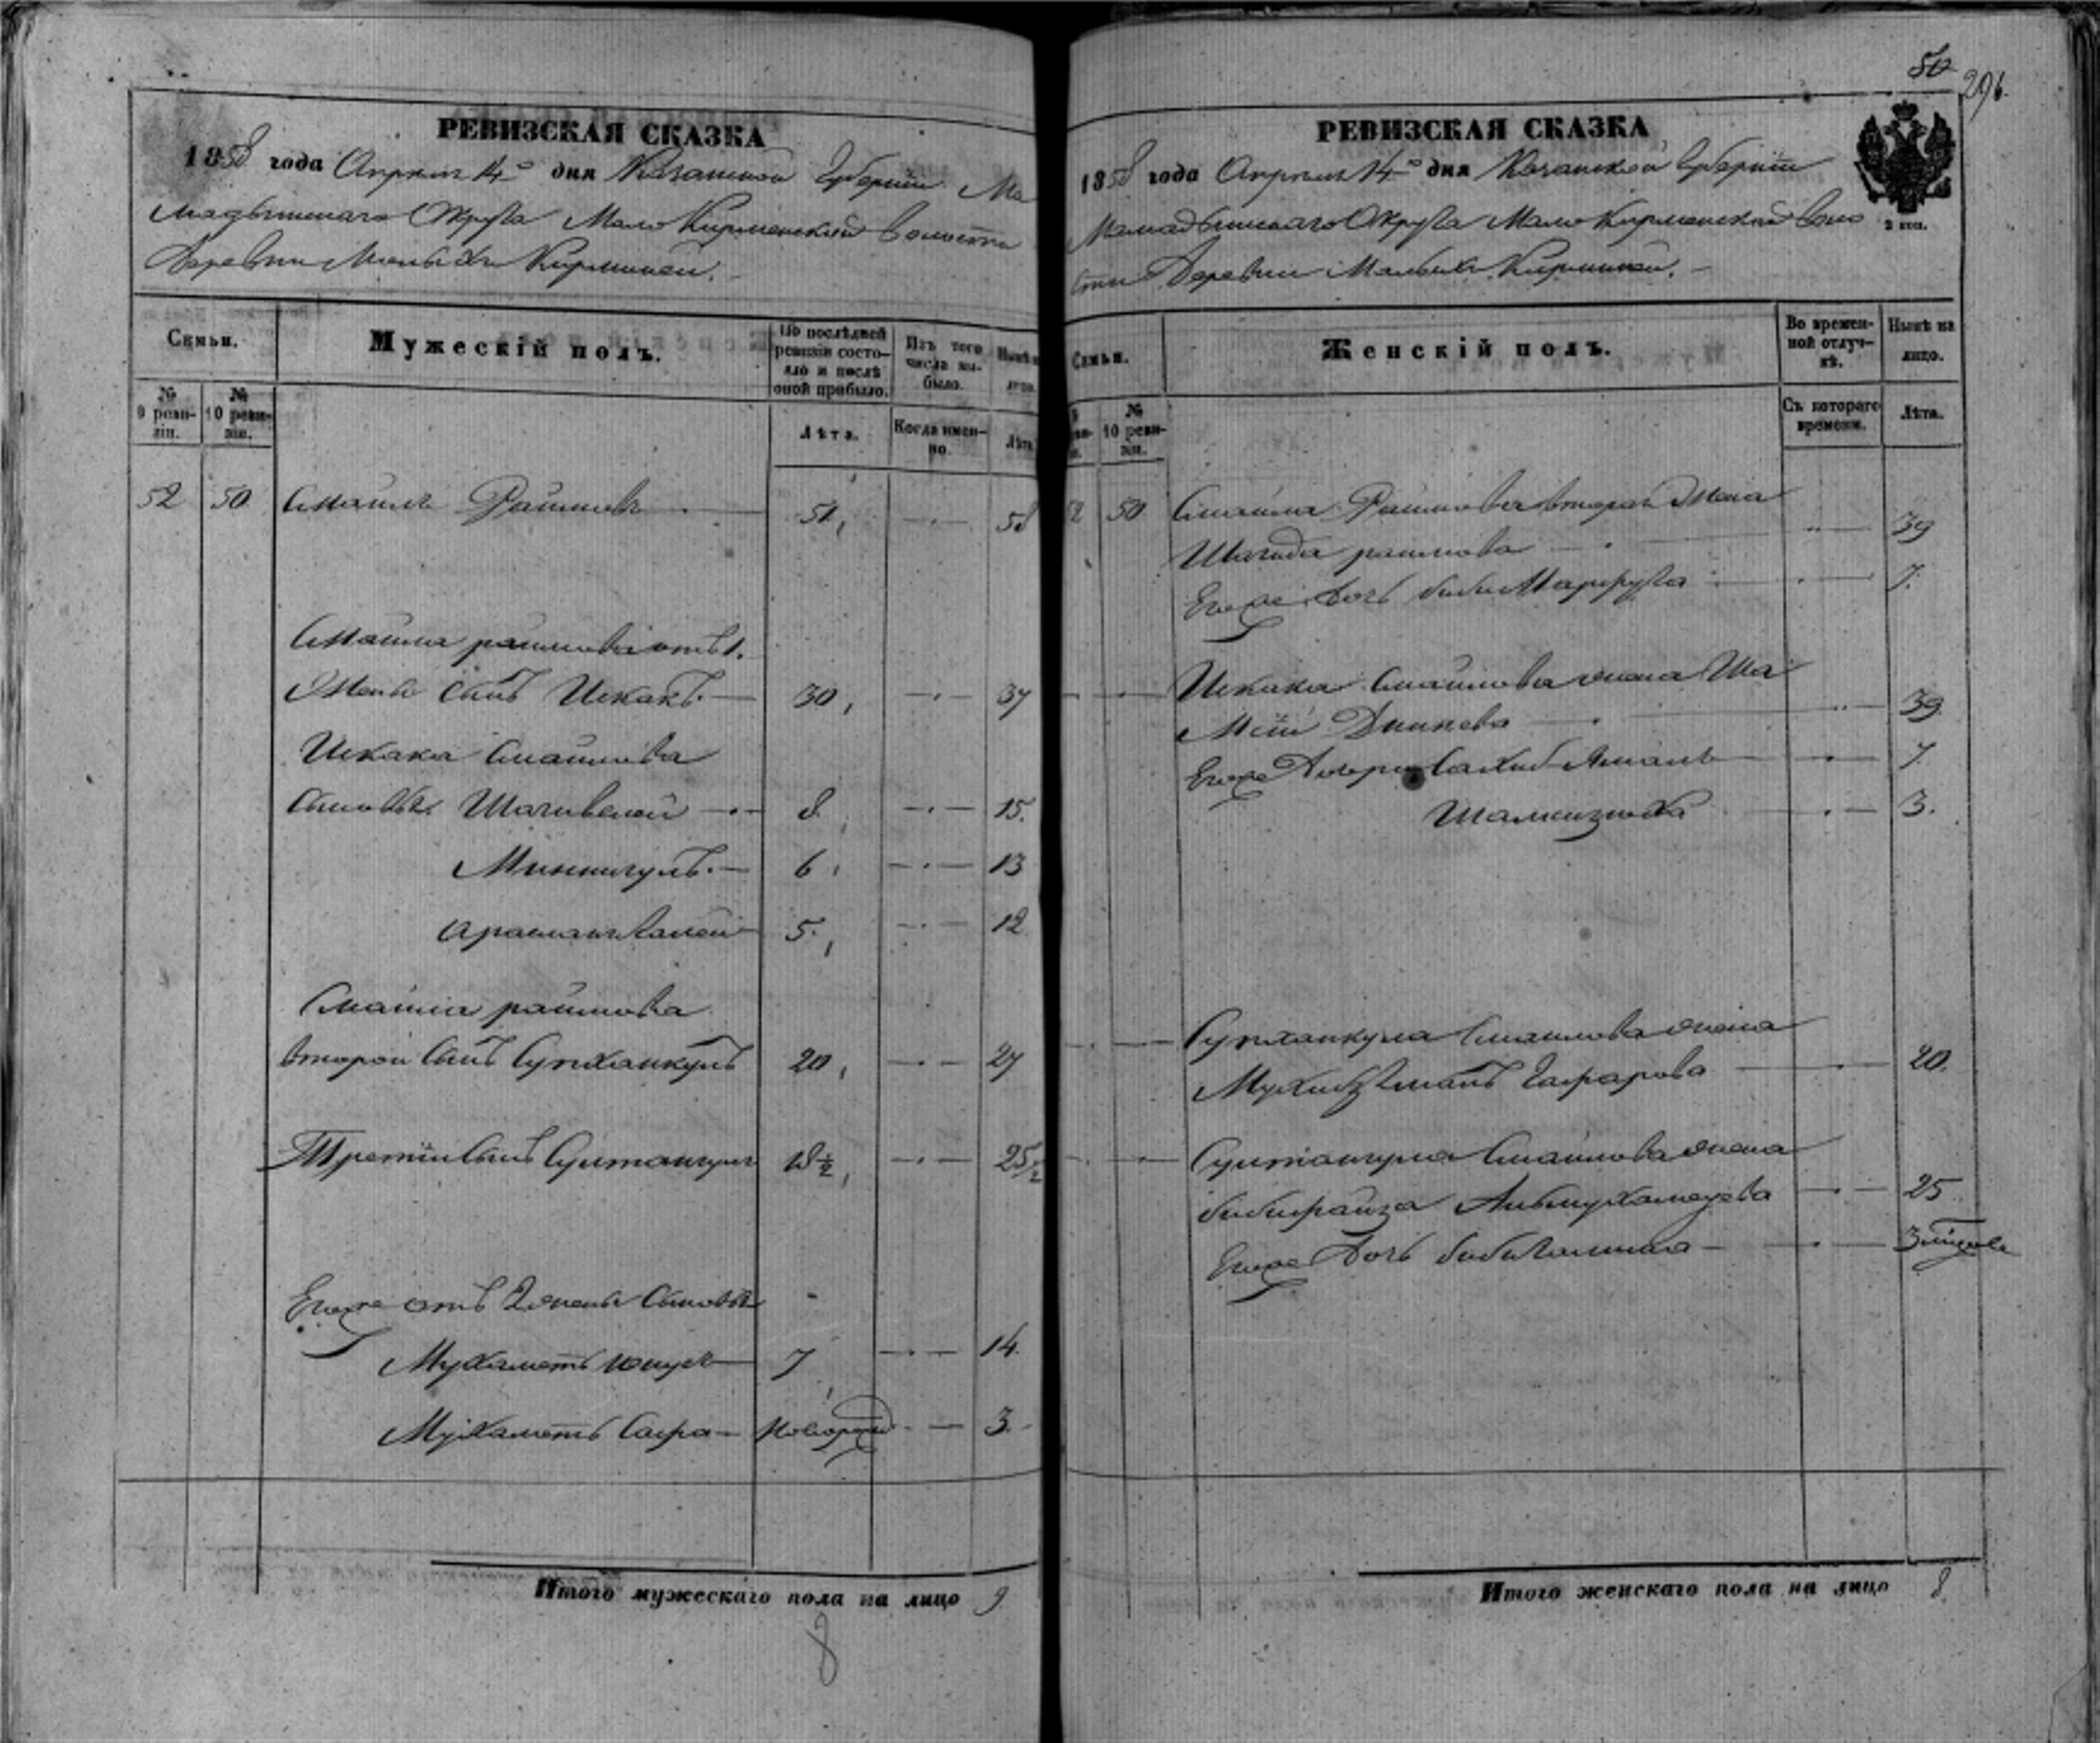 РЕВИЗСКАЯ СКАЗКА
1858 года Апреля 14 дня Казанской Губерніи Ма
мадышскаго Округа Мало Кирменской волости
Деревни Малыхъ Кирменей.
Семьи.
Мужескій полъ.
По послѣдней ревизіи состояло и послѣ оной прибыло.
Изъ того числа выбыло.
№ 9 ревизіи.
№ 10 ревизіи.
Лѣта.
Когда именно.
Лѣта
52 50 Смаилъ Раимовъ 51, 58
Смаила раимова отъ 1.
жены сынъ Исхакъ. 30, 37
Исхака Смаилова
сыновья Шагивелей 8, 15.
Миннигулъ. 6, 13
5, 12
Смаила раимова
второй сынъ Супханкулъ 20, 27
Третій сынъ Султангулъ 18½, 25½
Егоже отъ 2 жены сыновья
Мухаметъ юнусъ 7 14.
Мухаметъ Сафа новорож 3.
Итого мужескаго пола на лицо 9
8
50
296.
РЕВИЗСКАЯ СКАЗКА
1858 года Апреля 14 дня Казанской Губерніи
Мамадышскаго Округа Мало Кирменской воло
сти Деревни Малыхъ Кирменей.
2 коп.
Семьи.
Женскій полъ.
Во временной отлучкѣ.
Нынѣ на лицо.
№ 10 ревизіи.
Съ котораго времени.
Лѣта.
52 50 Смаила Раимова вторая жена
Шагида раимова 39
Егоже дочь биби Маррруза 7.
Исхака Смаилова жена Ша
39.
Егоже дочери 7
3.
Супханкула Смаилова жена
Гафарова 20.
Султангула Смаилова жена
бибифайза 25
Егоже дочь бибигалима 3 мѣсяца
Итого женскаго пола на лицо 8